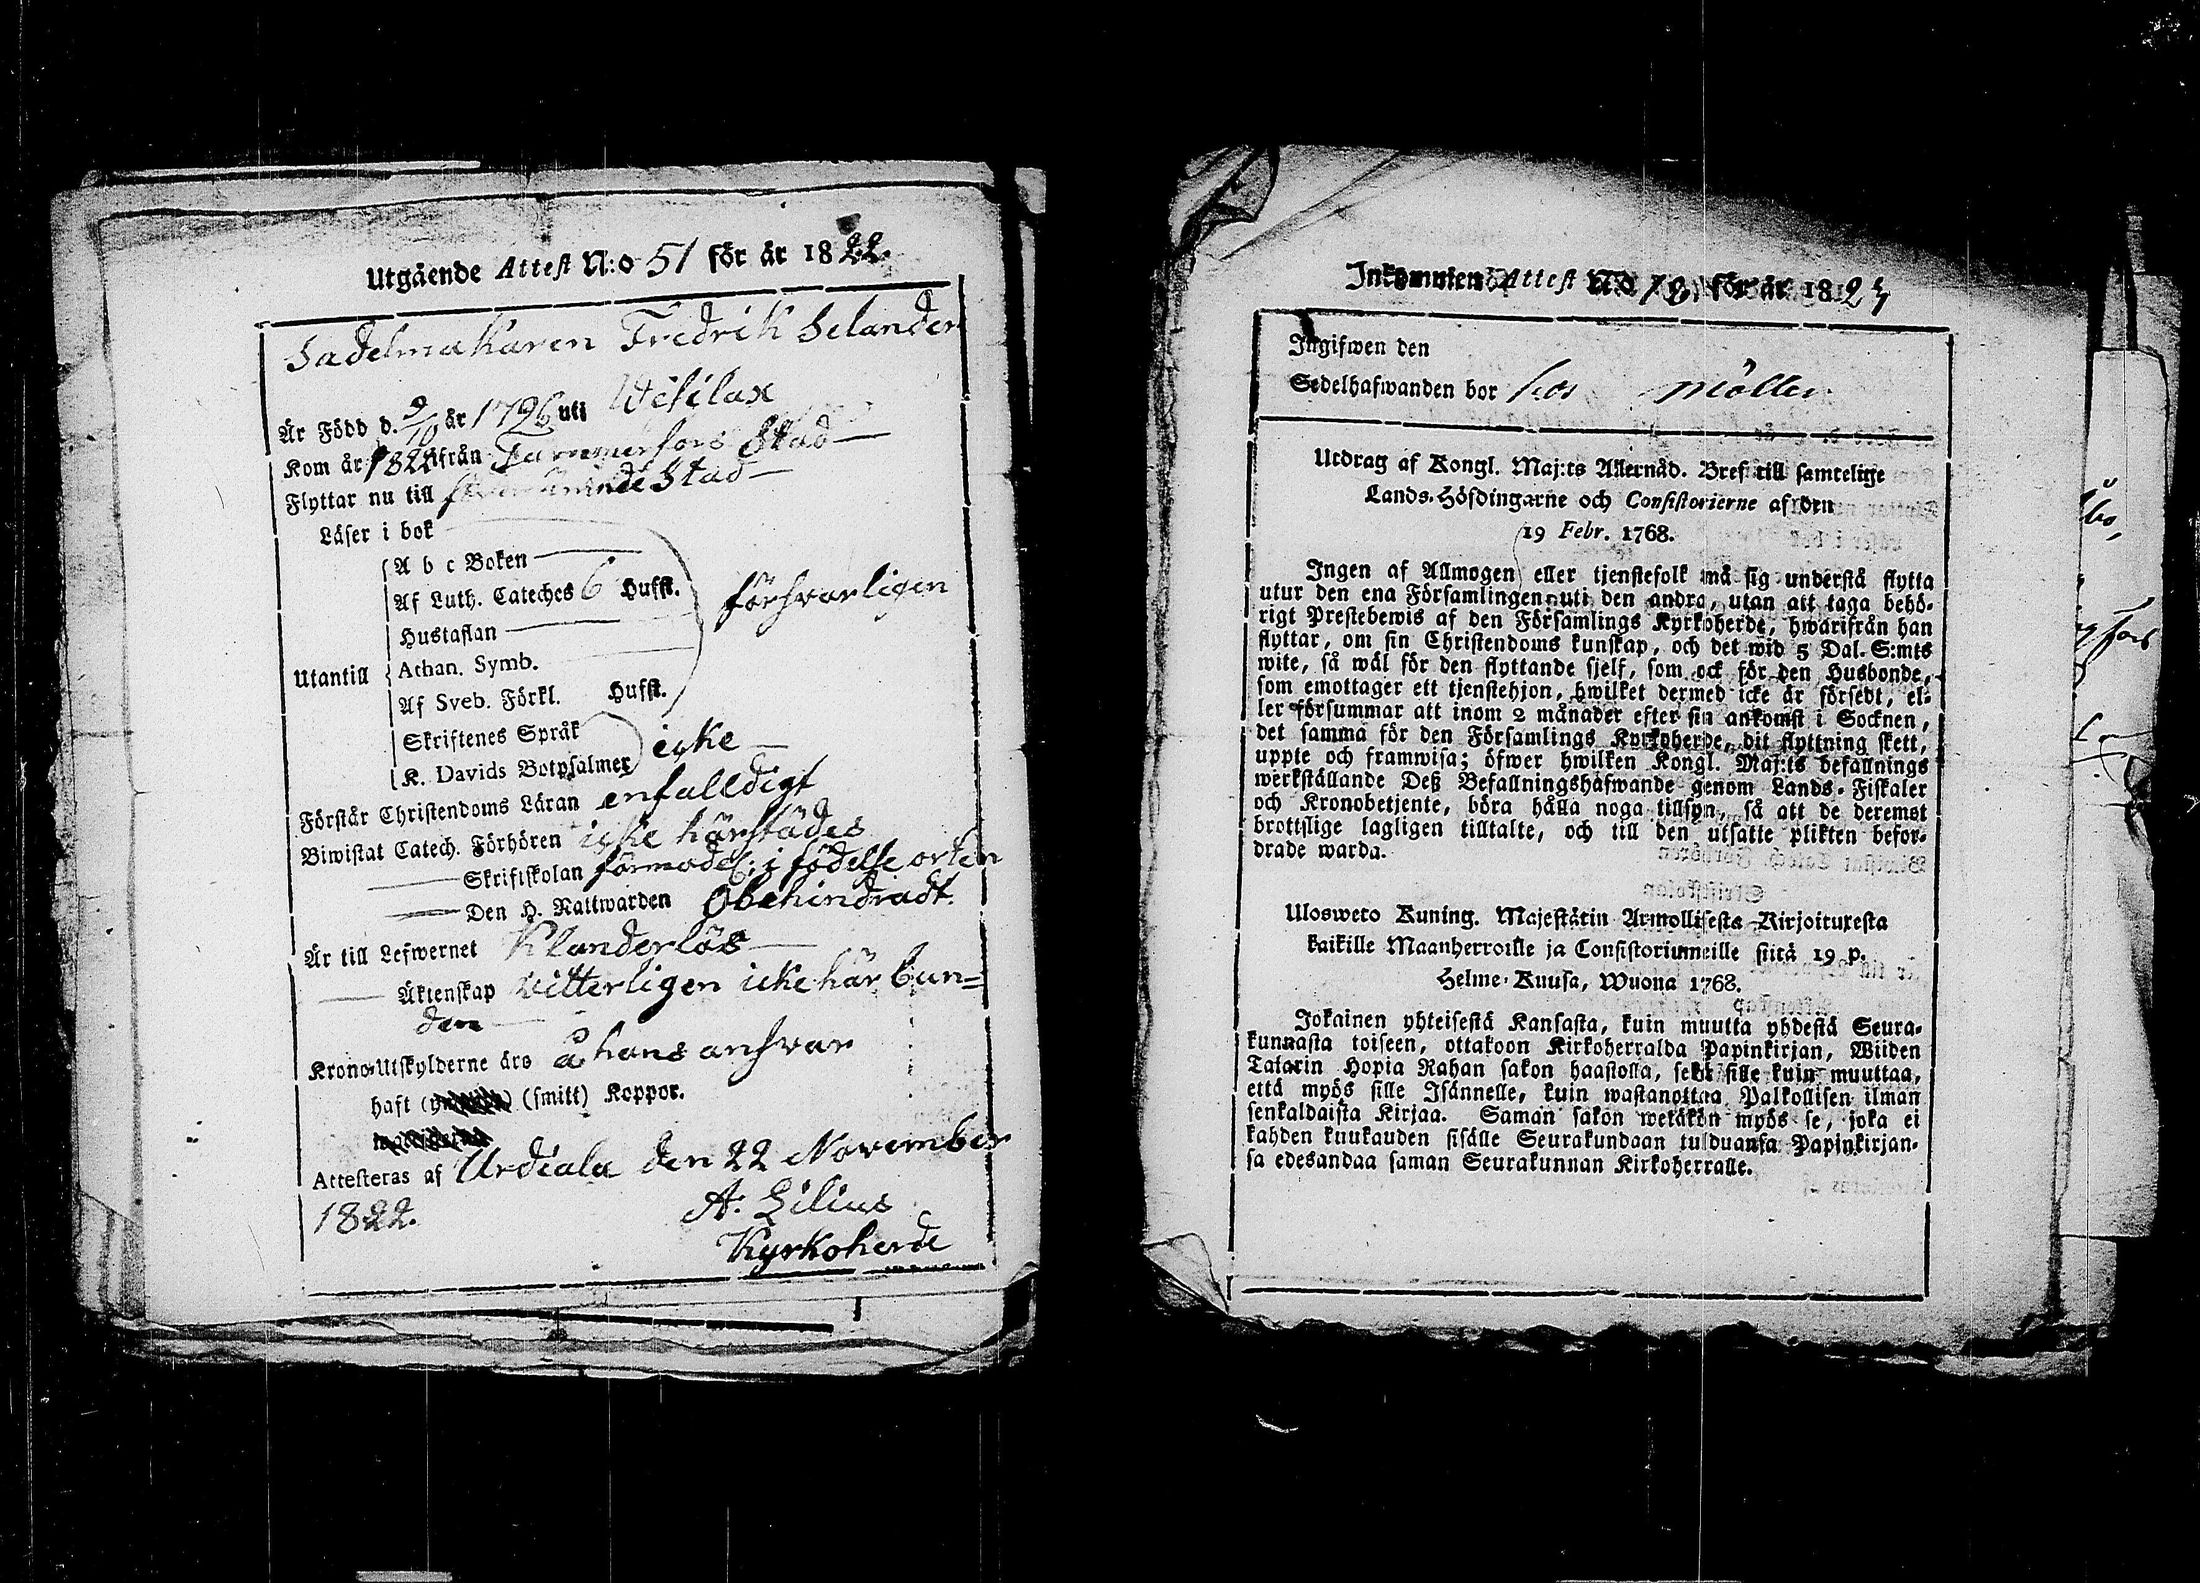 Utgående Attest N:o 51 för år 1822.
Sadelmakaren Fredrik Selander
Är Född d. 9/10 år 1796 uti Wesilax
Kom år 1822 ifrån Tammerfors Stad
Flyttar nu till Stad
Läser i bok
A b c Boken
Af Luth. Cateches 6 Hufst. försvarligen
Hustaflan
Utantill Athan. Symb.
Af Sveb. Förkl. Hufst.
Skriftenes Språk
K. Davids Botpsalmer icke
Förstår Christendoms Läran enfalldigt
Biwistat Catech. Förhören icke härstädes
Skriftskolan förmodel: i födelse orten
Den H. Nattwarden Obehindradt.
Är till Lefwernet Klanderlös
Äktenskap vitterligen icke här bun=
den
Krono-Utskylderne äro å hans ansvar
haft (smitt) Koppor.
Attesteras af Urdiala den 22 November
1822.
A. Lilius
Kyrkoherde
Inkommen Attest N:o för år 182
Ingifwen den
Sedelhafwanden bor hos Möller
Utdrag af Kongl. Maj:ts Allernåd. Bref till samtelige
Lands-Höfdingarne och Consistorierne af den
19 Febr. 1768.
Ingen af Allmogen eller tjenstefolk må sig understå flytta
utur den ena Församlingen uti den andra, utan att taga behö-
rigt Prestebewis af den Församlings Kyrkoherde, hwarifrån han
flyttar, om sin Christendoms kunskap, och det wid 5 Dal. S:mts
wite, så wäl för den flyttande sjelf, som ock för den Husbonde,
som emottager ett tjenstehjon, hwilket dermed icke är försedt, el-
ler försummar att inom 2 månader efter sin ankomst i Socknen,
det samma för den Församlings Kyrkoherde, dit flyttning skett,
uppte och framwisa; öfwer hwilken Kongl. Maj:ts befallnings
werkställande Deß Befallningshafwande genom Lands-Fiskaler
och Kronobetjente, böra hålla noga tillsyn, så att de deremot
brottslige lagligen tilltalte, och till den utsatte plikten befor-
drade warda.
Ulosweto Kuning. Majestätin Armollisesta Kirjoituxesta
kaikille Maanherroille ja Consistoriumeille siitä 19 p.
Helme-Kuusa, Wuona 1768.
Jokainen yhteisestä Kansasta, kuin muutta yhdestä Seura-
kunnasta toiseen, ottakoon Kirkoherralda Papinkirjan, Wiiden
Talarin Hopia Rahan sakon haastolla, sekä sille kuin muuttaa,
että myös sille Isännelle, kuin wastanottaa Palkollisen ilman
senkaldaista Kirjaa. Saman sakon wetäkön myös se, joka ei
kahden kuukauden sisälle Seurakundaan tulduansa Papinkirjan-
sa edesandaa saman Seurakunnan Kirkoherralle.